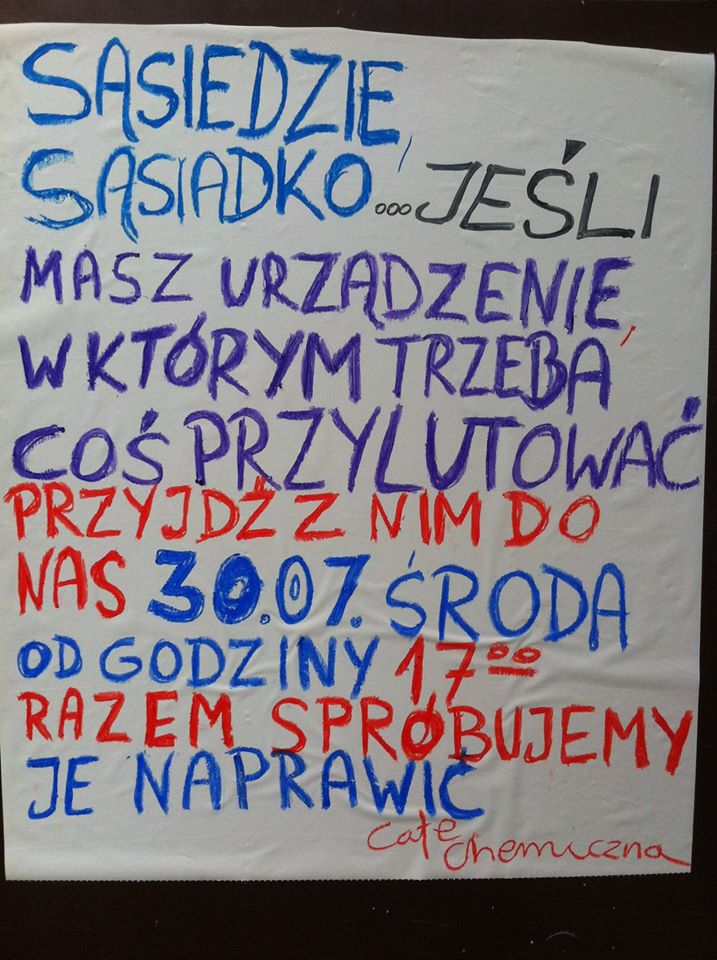 SĄSIEDZIE,
SĄSIADKO...JEŚLI
MASZ URZĄDZENIE,
W KTÓRYM TRZEBA
COŚ PRZYLUTOWAĆ
PRZYJDŹ Z NIM DO
NAS 30.07. ŚRODA
OD GODZINY 17⁰⁰
RAZEM SPRÓBUJEMY
JE NAPRAWIĆ
Cafe
Chemiczna